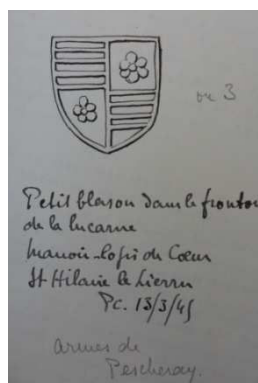 ou 3
Petit blason dans le fronton
de la lucarne
manoir-logis du Cœur
St Hilaire le Lierru
Pc. 13/3/45
armes de
Pescheray.